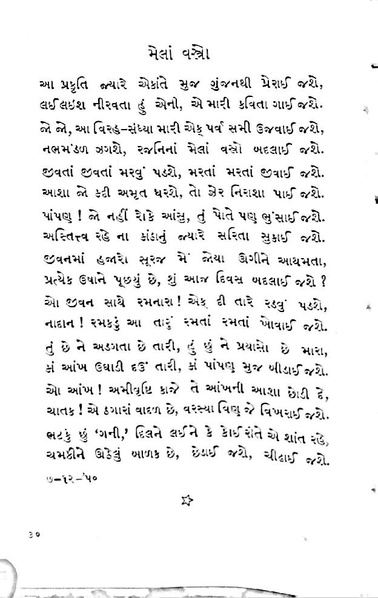 મેલાં વસ્ત્રો
આ પ્રકૃતિ જ્યારે એકાંતે મુજ ગુંજનથી પ્રેરાઈ જશે,
લઈલઈશ નીરવતા હું એની, એ મારી કવિતા ગાઈ જશે.
જો જો, આ વિરહ-સંધ્યા મારી એક પર્વ સમી ઉજવાઈ જશે,
નભમંડળ ઝગશે, રજનિનાં મેલાં વસ્ત્રો બદલાઈ જશે.
જીવતાં જીવતાં મરવું પડશે, મરતાં મરતાં જીવાઈ જશે.
આશા જો કદી અમૃત ધરશે, તો ઝેર નિરાશા પાઈ જશે.
પાંપણ ! જો નહીં રોકે આંસુ, તું પોતે પણ ભુંસાઈ જશે.
અસ્તિત્વ રહે ના કાંઠાનું જ્યારે સરિતા સુકાઈ જશે.
જીવનમાં હજારો સૂરજ મેં જોયા ઊગીને આથમતા,
પ્રત્યેક ઉષાને પૂછ્યું છે, શું આજ દિવસ બદલાઈ જશે ?
ઓ જીવન સાથે રમનારા ! એક દી તારે રડવું પડશે,
નાદાન ! રમકડું આ તારું રમતાં રમતાં ખોવાઈ જશે.
તું છે ને અડગતા છે તારી, હું છું ને પ્રયાસો છે મારા,
કાં આંખ ઉઘાડી દઉં તારી, કાં પાંપણ મુજ બીડાઈ જશે.
ઓ આંખ ! અમીવૃષ્ટિ કાજે તે આંખની આશા છોડી દે,
ચાતક ! એ ઠગારાં વાદળ છે, વરસ્યા વિણ જે વિખરાઈ જશે.
ભટકું છું ‘ગની,’ દિલને લઈને કે કોઈ રીતે એ શાંત રહે,
ચમકીને ઊઠેલું બાળક છે, છેડાઈ જશે, ચીઢાઈ જશે.
૭-૧૨-’૫૦
૩૦